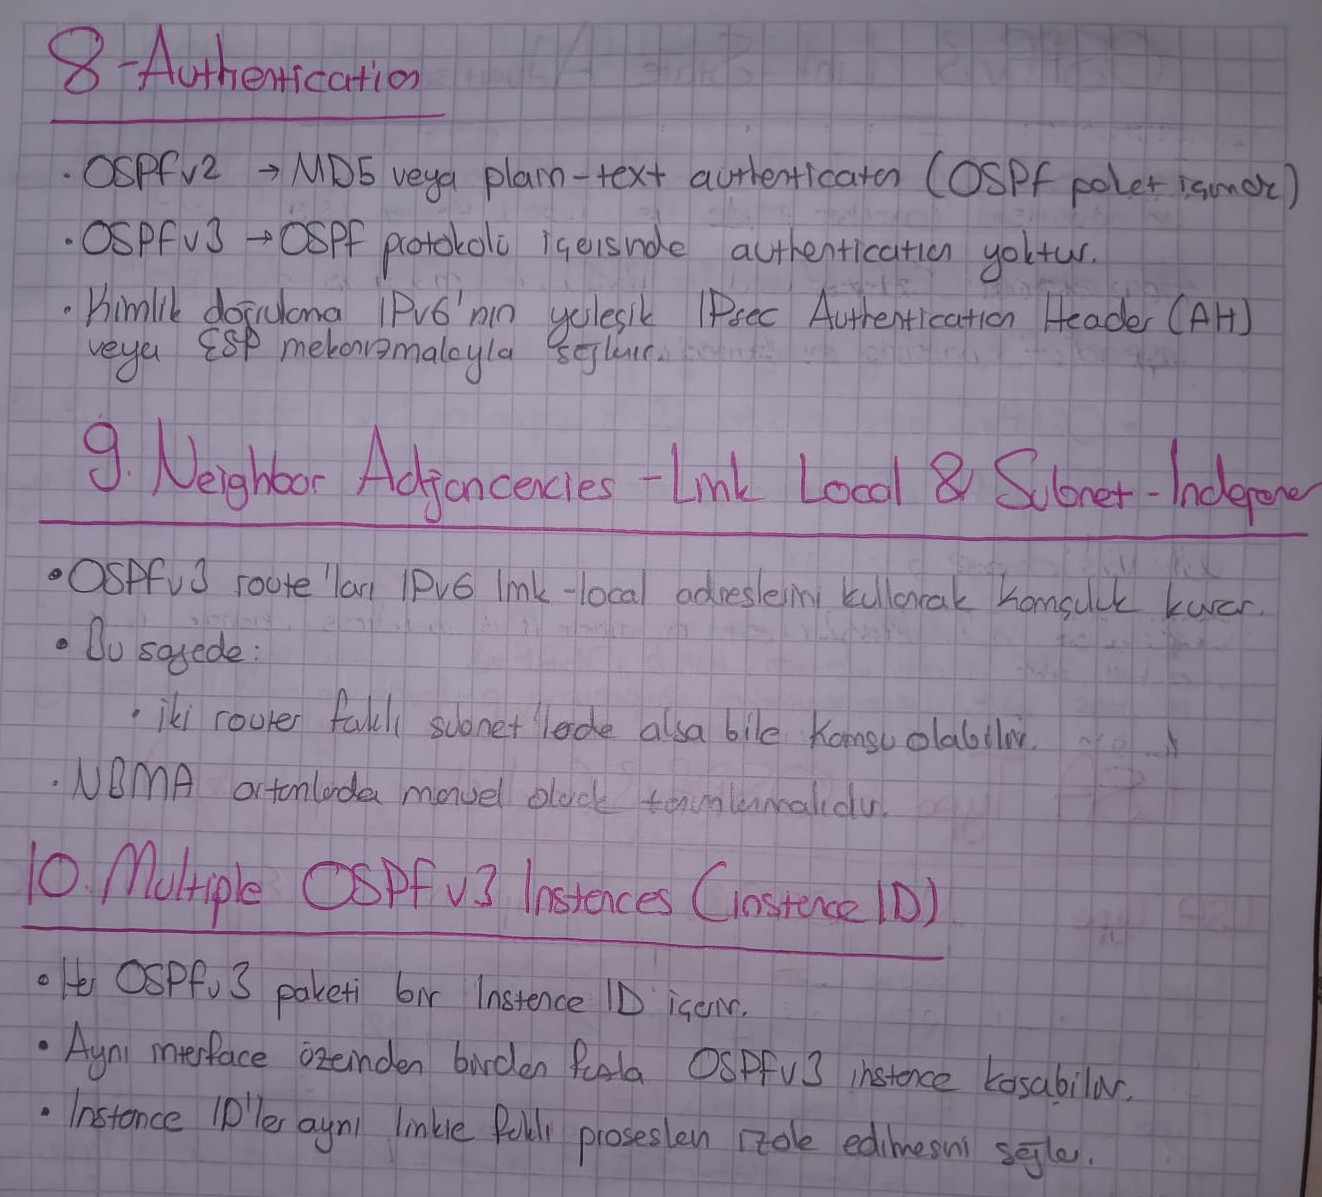 8-Authentication
. OSPFv2 → MD5 veya plain-text authentication (OSPF paket içinde)
. OSPFv3 → OSPF protokolü içerisinde authentication yoktur.
. Kimlik doğrulama IPv6'nın yerleşik IPsec Authentication Header (AH)
veya ESP mekanizmalarıyla sağlanır.
9. Neighbor Adjancencies - Link Local & Subnet-Indepene
• OSPFv3 route'ları IPv6 link-local adreslerini kullanarak komşuluk kurar.
• Bu sayede:
. iki router farklı subnet'lerde olsa bile komşu olabilir.
. NBMA ortamlarda manuel olarak tanımlanmalıdır.
10. Multiple OSPFv3 Instences (instence ID)
• Her OSPFv3 paketi bir Instence ID içerir.
• Aynı interface üzerinden birden fazla OSPFv3 instance koşabilir.
• Instance ID'ler aynı linkte farklı proseslerin izole edilmesini sağlar.